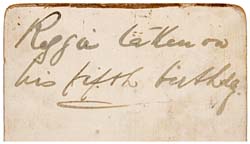 Reggie taken on
his fifth birthday